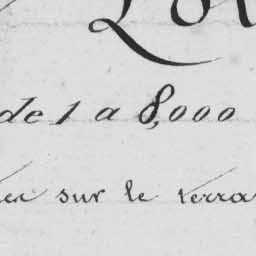 de 1 a 8,000
sur le terra